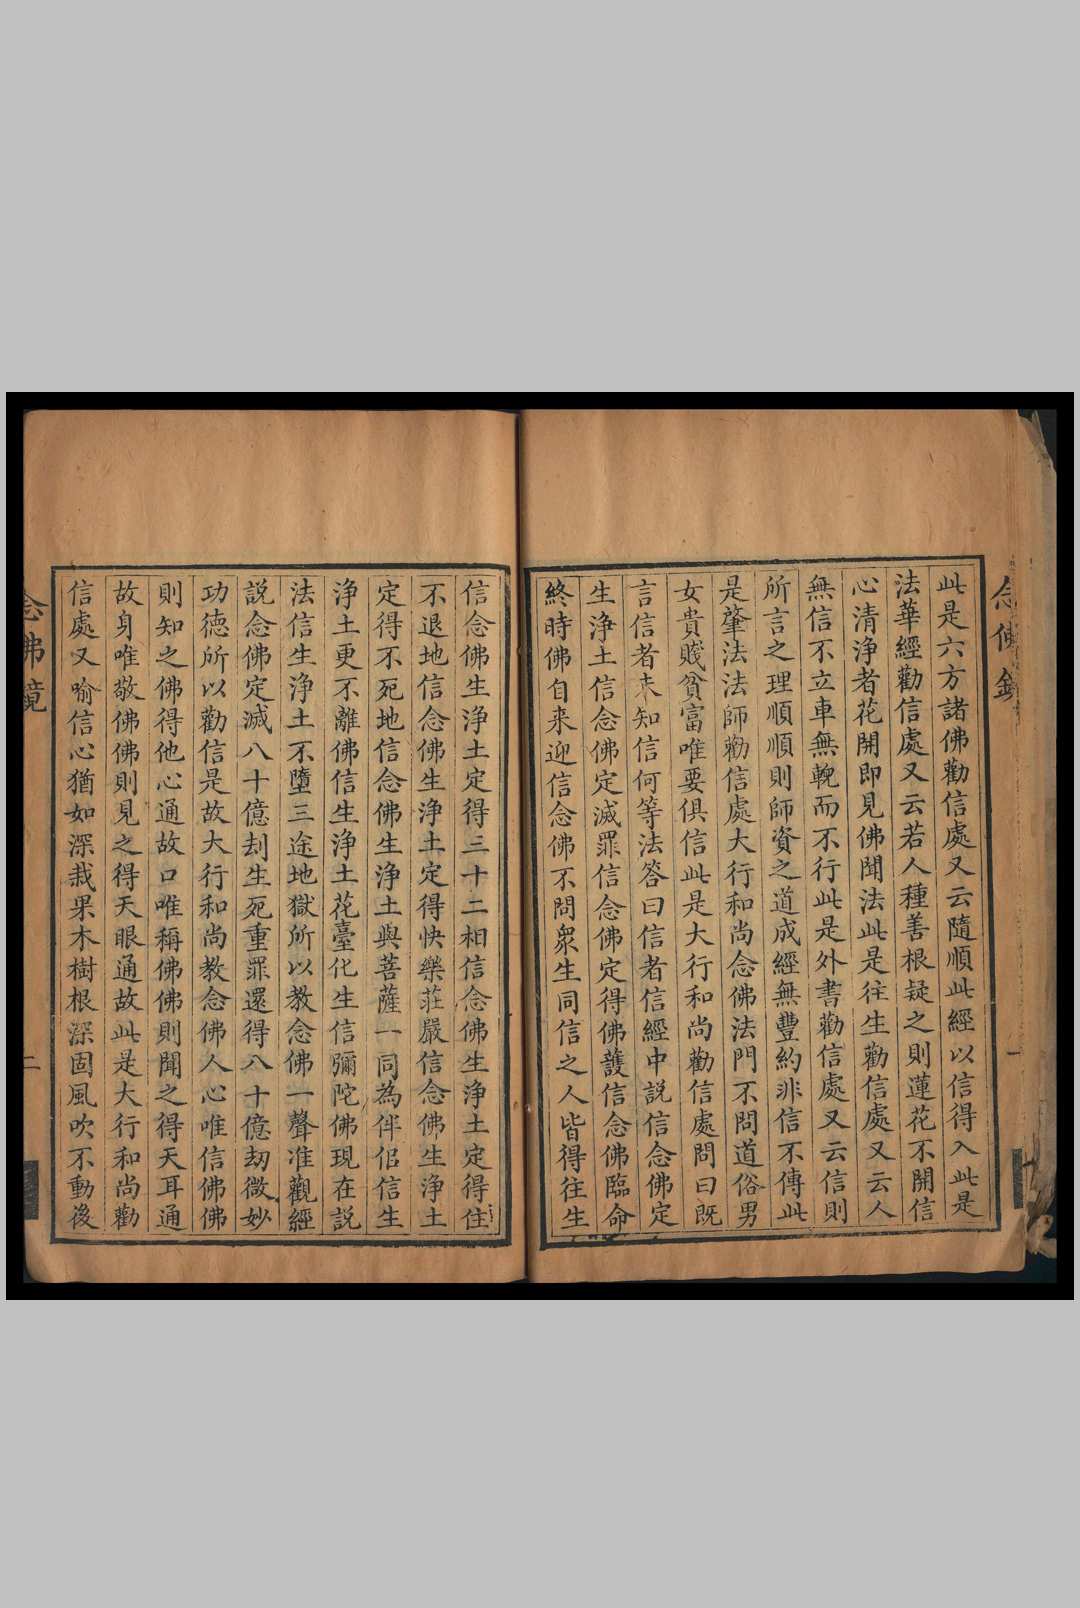 念佛鏡
一
此是六方諸佛勸信處又云隨順此經以信得入此是
法華經勸信處又云若人種善根疑之則蓮花不開信
心清淨者花開即見佛聞法此是往生勸信處又云人
無信不立車無輗而不行此是外書勸信處又云信則
所言之理順順則師資之道成經無豐約非信不傳此
是肇法法師勸信處大行和尚念佛法門不問道俗男
女貴賤貧富唯要俱信此是大行和尚勸信處問曰既
言信者未知信何等法答曰信者信經中説信念佛定
生淨土信念佛定滅罪信念佛定得佛護信念佛臨命
終時佛自来迎信念佛不問衆生同信之人皆得往生
信念佛生淨土定得三十二相信念佛生淨土定得住
不退地信念佛生淨土定得快樂莊嚴信念佛生淨土
定得不死地信念佛生淨土與菩薩一同為伴侣信生
淨土更不離佛信生淨土花臺化生信彌陀佛現在説
法信生淨土不墮三途地獄所以教念佛一聲准觀經
説念佛定滅八十億刦生死重罪還得八十億劫微妙
功德所以勸信是故大行和尚教念佛人心唯信佛佛
則知之佛得他心通故口唯稱佛佛則聞之得天耳通
故身唯敬佛佛則見之得天眼通故此是大行和尚勸
信處又喻信心猶如深栽果木樹根深固風吹不動後
念佛鏡
二